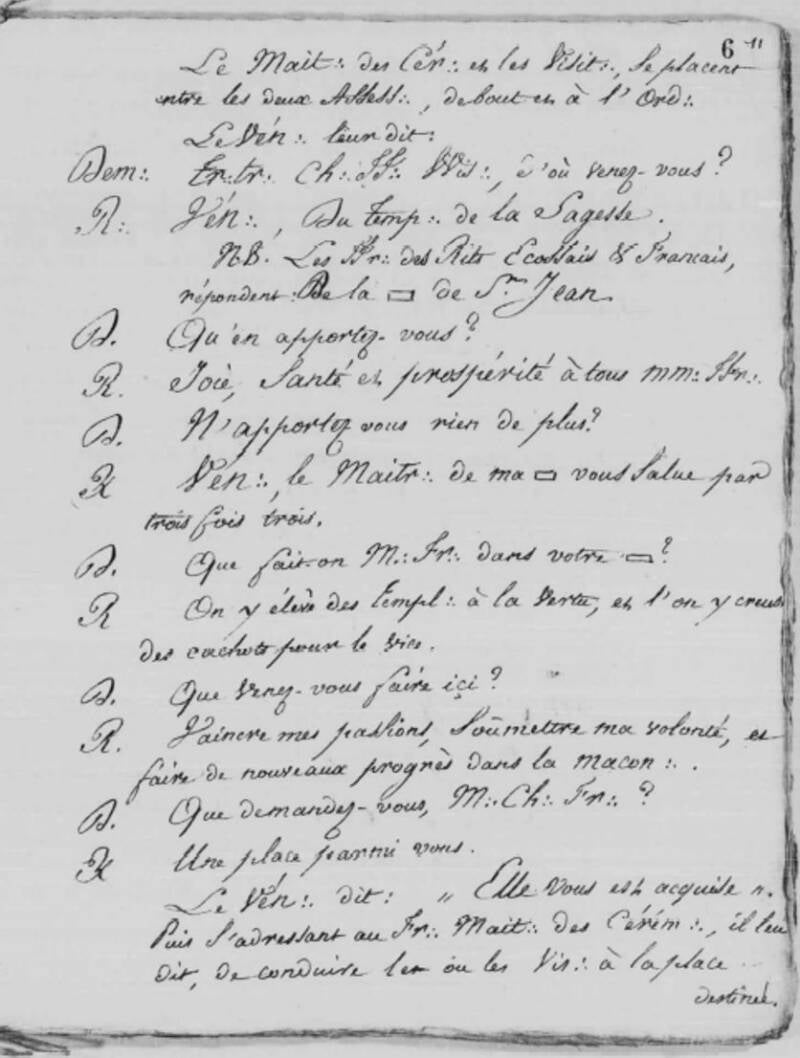 6 "
Le Mait∴ des Cér∴ et les Visit∴, se placent
entre les deux Assess∴, debout et à l'Ord∴
Le Vén∴ leur dit:
Dem∴ Tr. tr. Ch∴ FF∴ Vis∴, d'où venez-vous?
R∴ Vén∴, Du temp∴ de la Sagesse.
NB. Les FFr∴ des Rits Ecossais & Francais,
répondent: De la ▭ de St Jean
D. Qu'en apportez-vous?
R. Joie, Santé et prospérité à tous mm∴ FFr∴
D. N'apportez vous rien de plus?
R Vén∴, le Maitr∴ de ma ▭ vous Salue par
trois fois trois.
D. Que fait-on M∴ Fr∴ dans votre ▭?
R On y élève des templ∴ à la Vertu, et l'on y creuse
des cachots pour le vice.
D. Que venez-vous faire içi?
R. Vaincre mes passions, Soûmettre ma volonté, et
faire de nouveaux progrès dans la macon∴.
D. Que demandez-vous, M∴ Ch∴ Fr∴?
R Une place parmi vous.
Le Vén∴ dit: „ Elle vous est acquise „.
Puis S'adressant au Fr∴ Mait∴ des Cérém∴, il leu
dit, de conduire le ou les Vis∴ à la place
destinée.